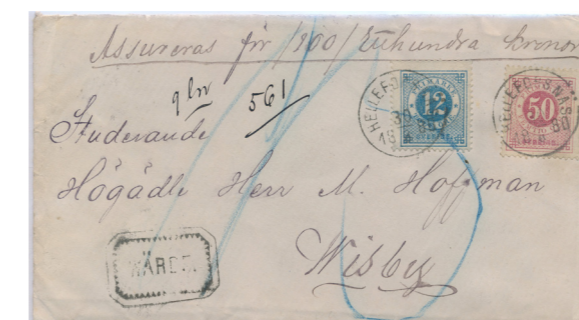 Assureras för /100/ Etthundra kronor
9 lov
561
FRIMÄRKE
12
HELLEFORSNÄS
30
18 85
50
HELLEFORSNÄS
30
Studerande
Högädle Herr M. Hoffman
Wisby
VÄRDE.